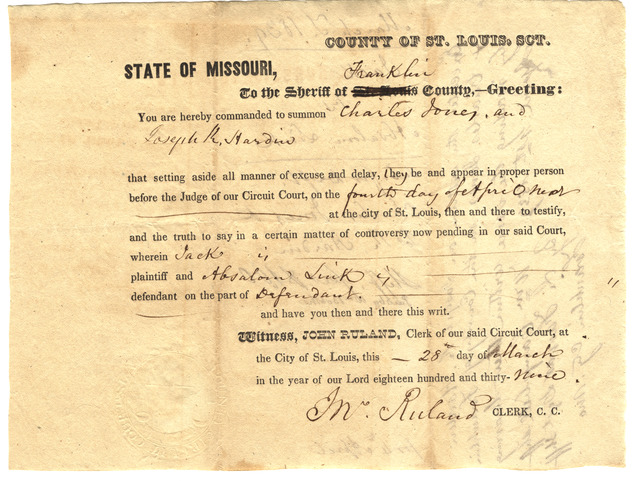 COUNTY OF ST. LOUIS, SCT.
STATE OF MISSOURI,
Franklin
To the Sheriff of St. Louis County,—Greeting:
You are hereby commanded to summon Charles Jones, and
Joseph K. Hardin
that setting aside all manner of excuse and delay, they be and appear in proper person
before the Judge of our Circuit Court, on the fourth day of April next
at the city of St. Louis, then and there to testify,
and the truth to say in a certain matter of controversy now pending in our said Court,
wherein Jack is
plaintiff and Absalom Link is
defendant on the part of Defendant.
and have you then and there this writ.
Witness, JOHN RULAND, Clerk of our said Circuit Court, at
the City of St. Louis, this — 28th day of March
in the year of our Lord eighteen hundred and thirty-Nine.
Jno. Ruland CLERK, C. C.